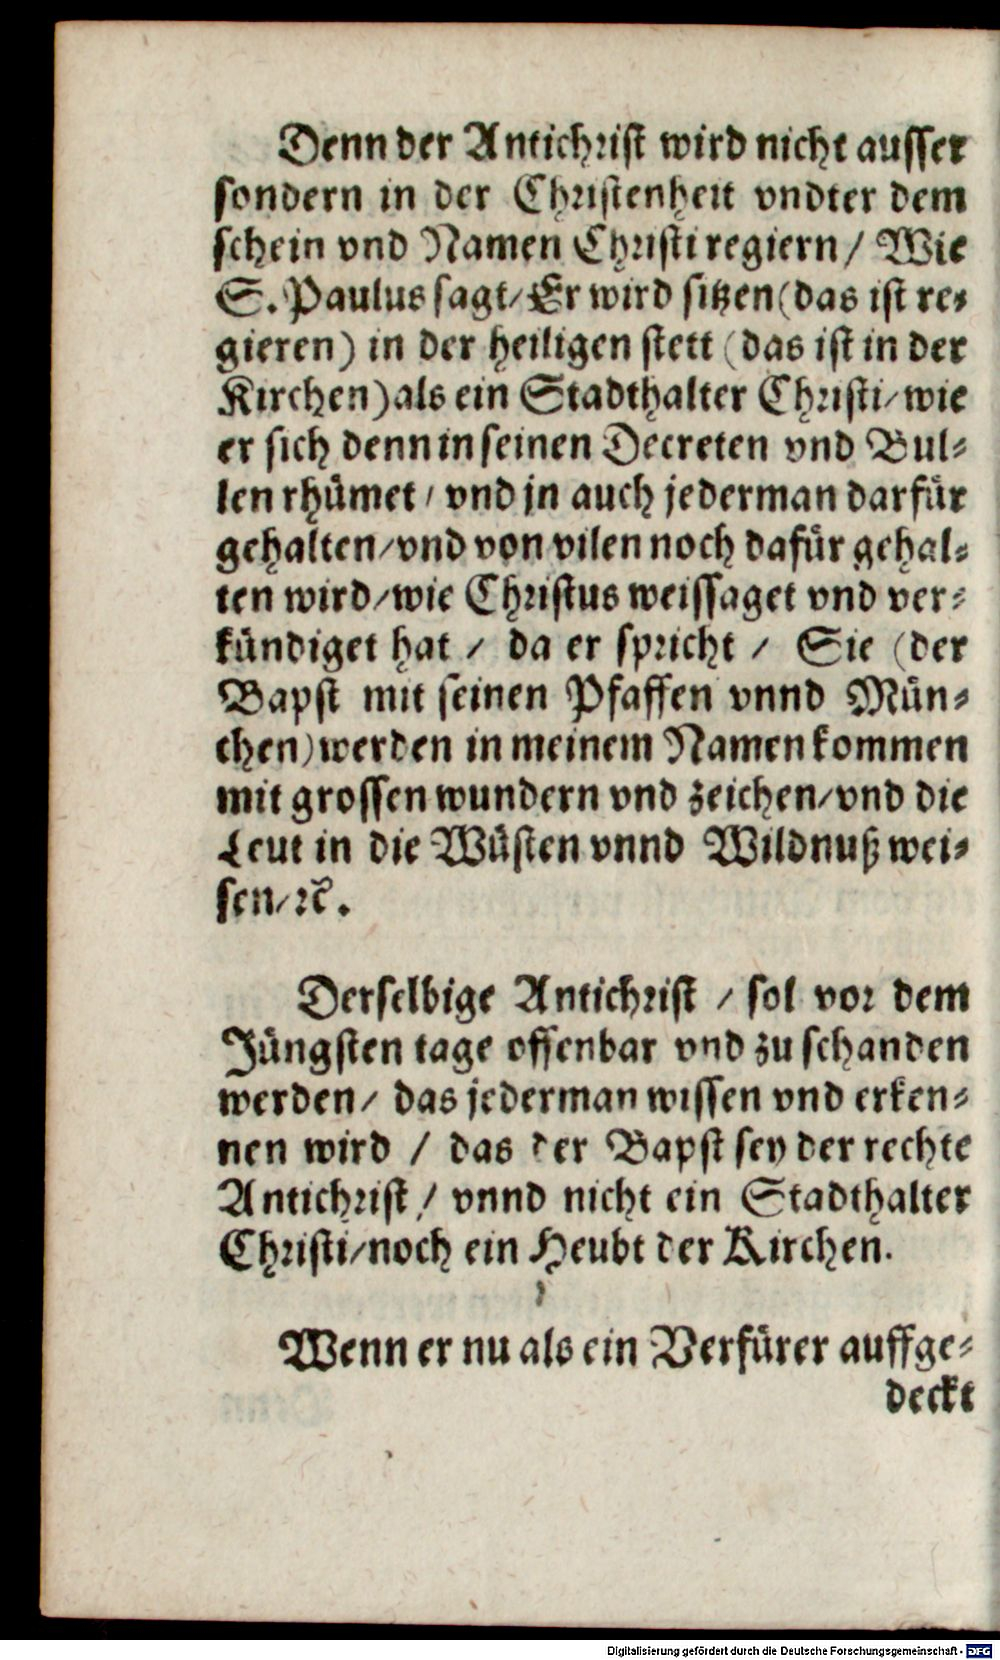 Denn der Antichrist wird nicht ausser
sondern in der Christenheit vndter dem
schein vnd Namen Christi regiern / Wie
S. Paulus sagt / Er wird sitzen (das ist re-
gieren) in der heiligen stett (das ist in der
Kirchen) als ein Stadthalter Christi / wie
er sich denn in seinen Decreten vnd Bul-
len rhümet / vnd jn auch jederman darfür
gehalten / vnd von vilen noch dafür gehal-
ten wird / wie Christus weissaget vnd ver-
kündiget hat / da er spricht / Sie (der
Bapst mit seinen Pfaffen vnnd Mün-
chen) werden in meinem Namen kommen
mit grossen wundern vnd zeichen / vnd die
Leut in die Wüsten vnnd Wildnuß wei-
sen / ꝛc.
Derselbige Antichrist / sol vor dem
Jüngsten tage offenbar vnd zu schanden
werden / das jederman wissen vnd erken-
nen wird / das der Bapst sey der rechte
Antichrist / vnnd nicht ein Stadthalter
Christi / noch ein Heubt der Kirchen.
Wenn er nu als ein Verfürer auffge-
deckt
Digitalisierung gefördert durch die Deutsche Forschungsgemeinschaft - DFG